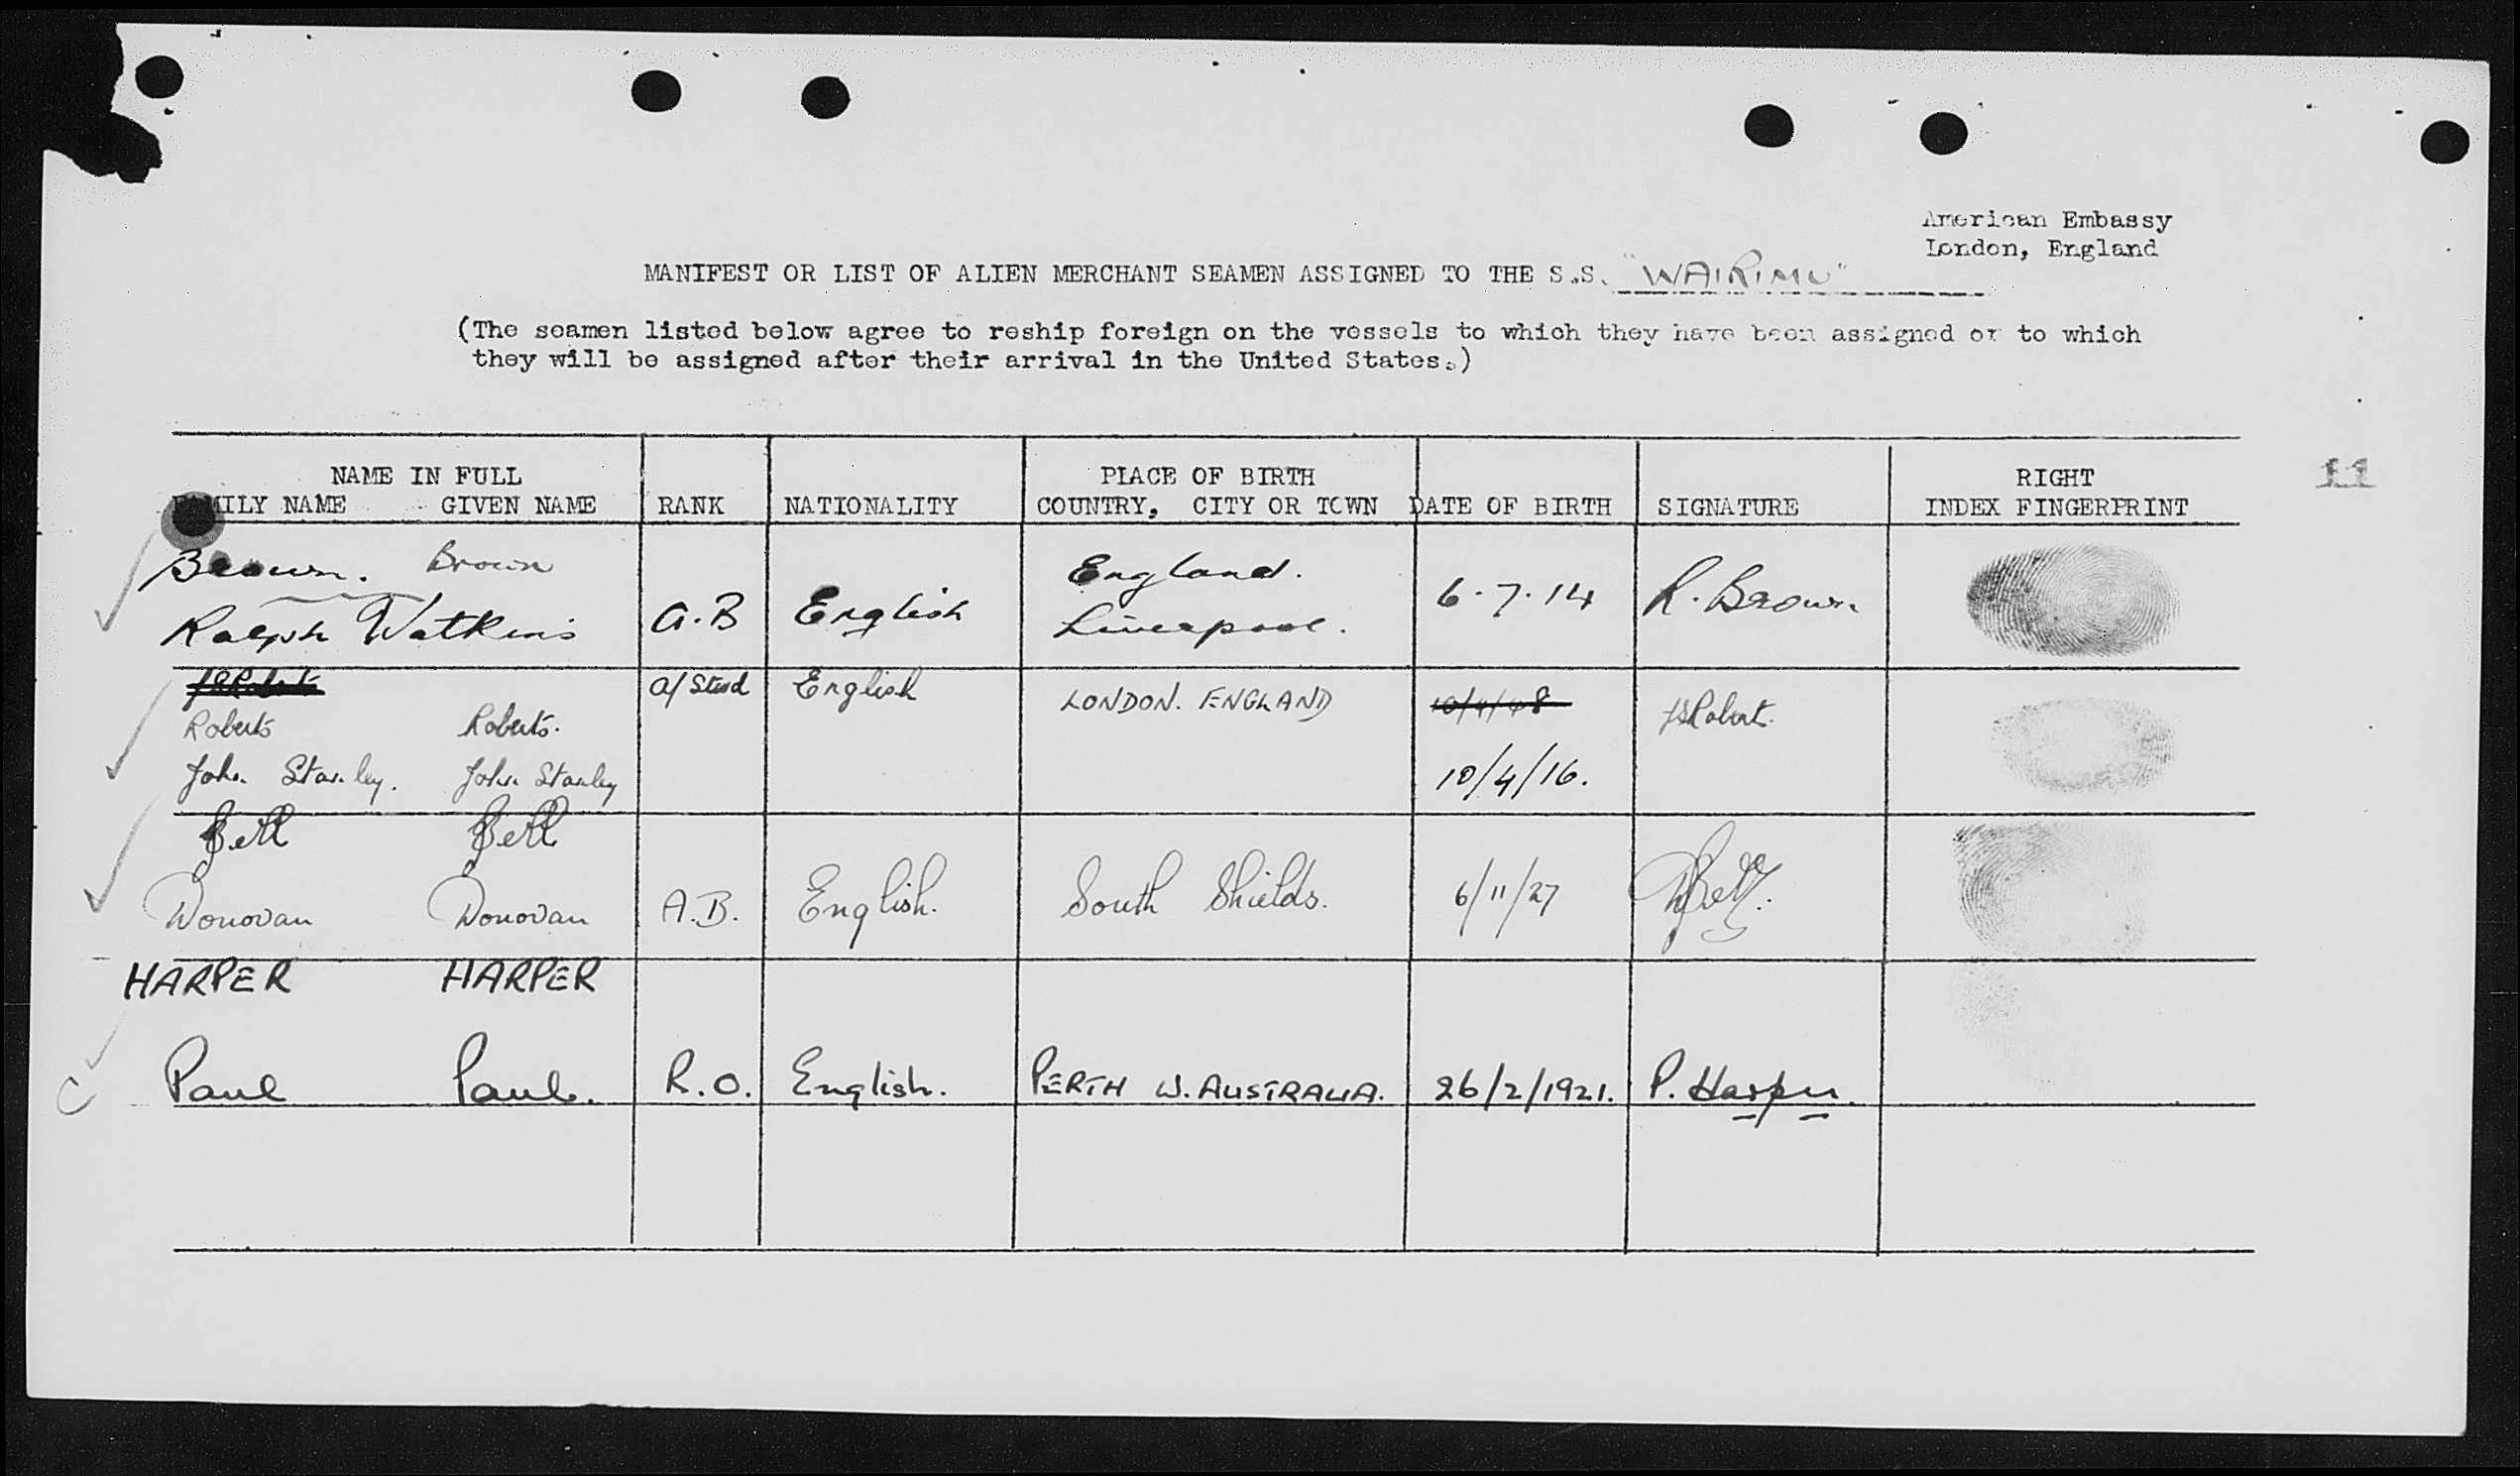 American Embassy
London, England
MANIFEST OR LIST OF ALIEN MERCHANT SEAMEN ASSIGNED TO THE S.S. "WAIRIMU"
(The seamen listed below agree to reship foreign on the vessels to which they have been assigned or to which
they will be assigned after their arrival in the United States.)
NAME IN FULL PLACE OF BIRTH RIGHT 11
FAMILY NAME GIVEN NAME RANK NATIONALITY COUNTRY, CITY OR TOWN DATE OF BIRTH SIGNATURE INDEX FINGERPRINT
Brown. Brown England.
Ralph Watkins A.B English Liverpool. 6.7.14 R. Brown
a/ Stwd English LONDON. ENGLAND
Roberts Roberts. JSRoberts.
John Stanley. John Stanley 10/4/16.
Bell Bell
Donovan Donovan A.B. English. South Shields. 6/11/27 DBell.
HARPER HARPER
Paul Paul. R.O. English. PERTH W. AUSTRALIA. 26/2/1921. P. Harper.
C